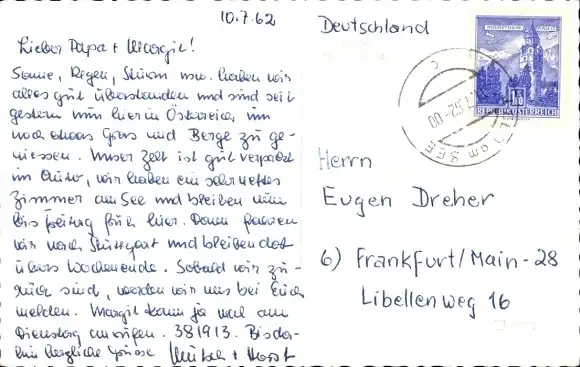 10.7.62
Lieber Papa + Margit!
Sonne, Regen, Sturm usw. haben wir
alles gut überstanden und sind seit
gestern nun hier in Österreich um
noch etwas Gras und Berge zu ge-
niessen. Unser Zelt ist gut verpackt
im Auto, wir haben ein sehr nettes
Zimmer am See und bleiben nun
bis Freitag früh hier. Dann fahren
wir nach Stuttgart und bleiben dort
übers Wochenende. Sobald wir zu-
rück sind, werden wir uns bei Euch
melden. Margit kann ja mal am
Dienstag anrufen. 381913. Bis da-
hin herzliche Grüsse + Horst
Deutschland
REPUBLIK ÖSTERREICH
am SEE
Herrn
Eugen Dreher
6) Frankfurt/Main-28
Libellenweg 16